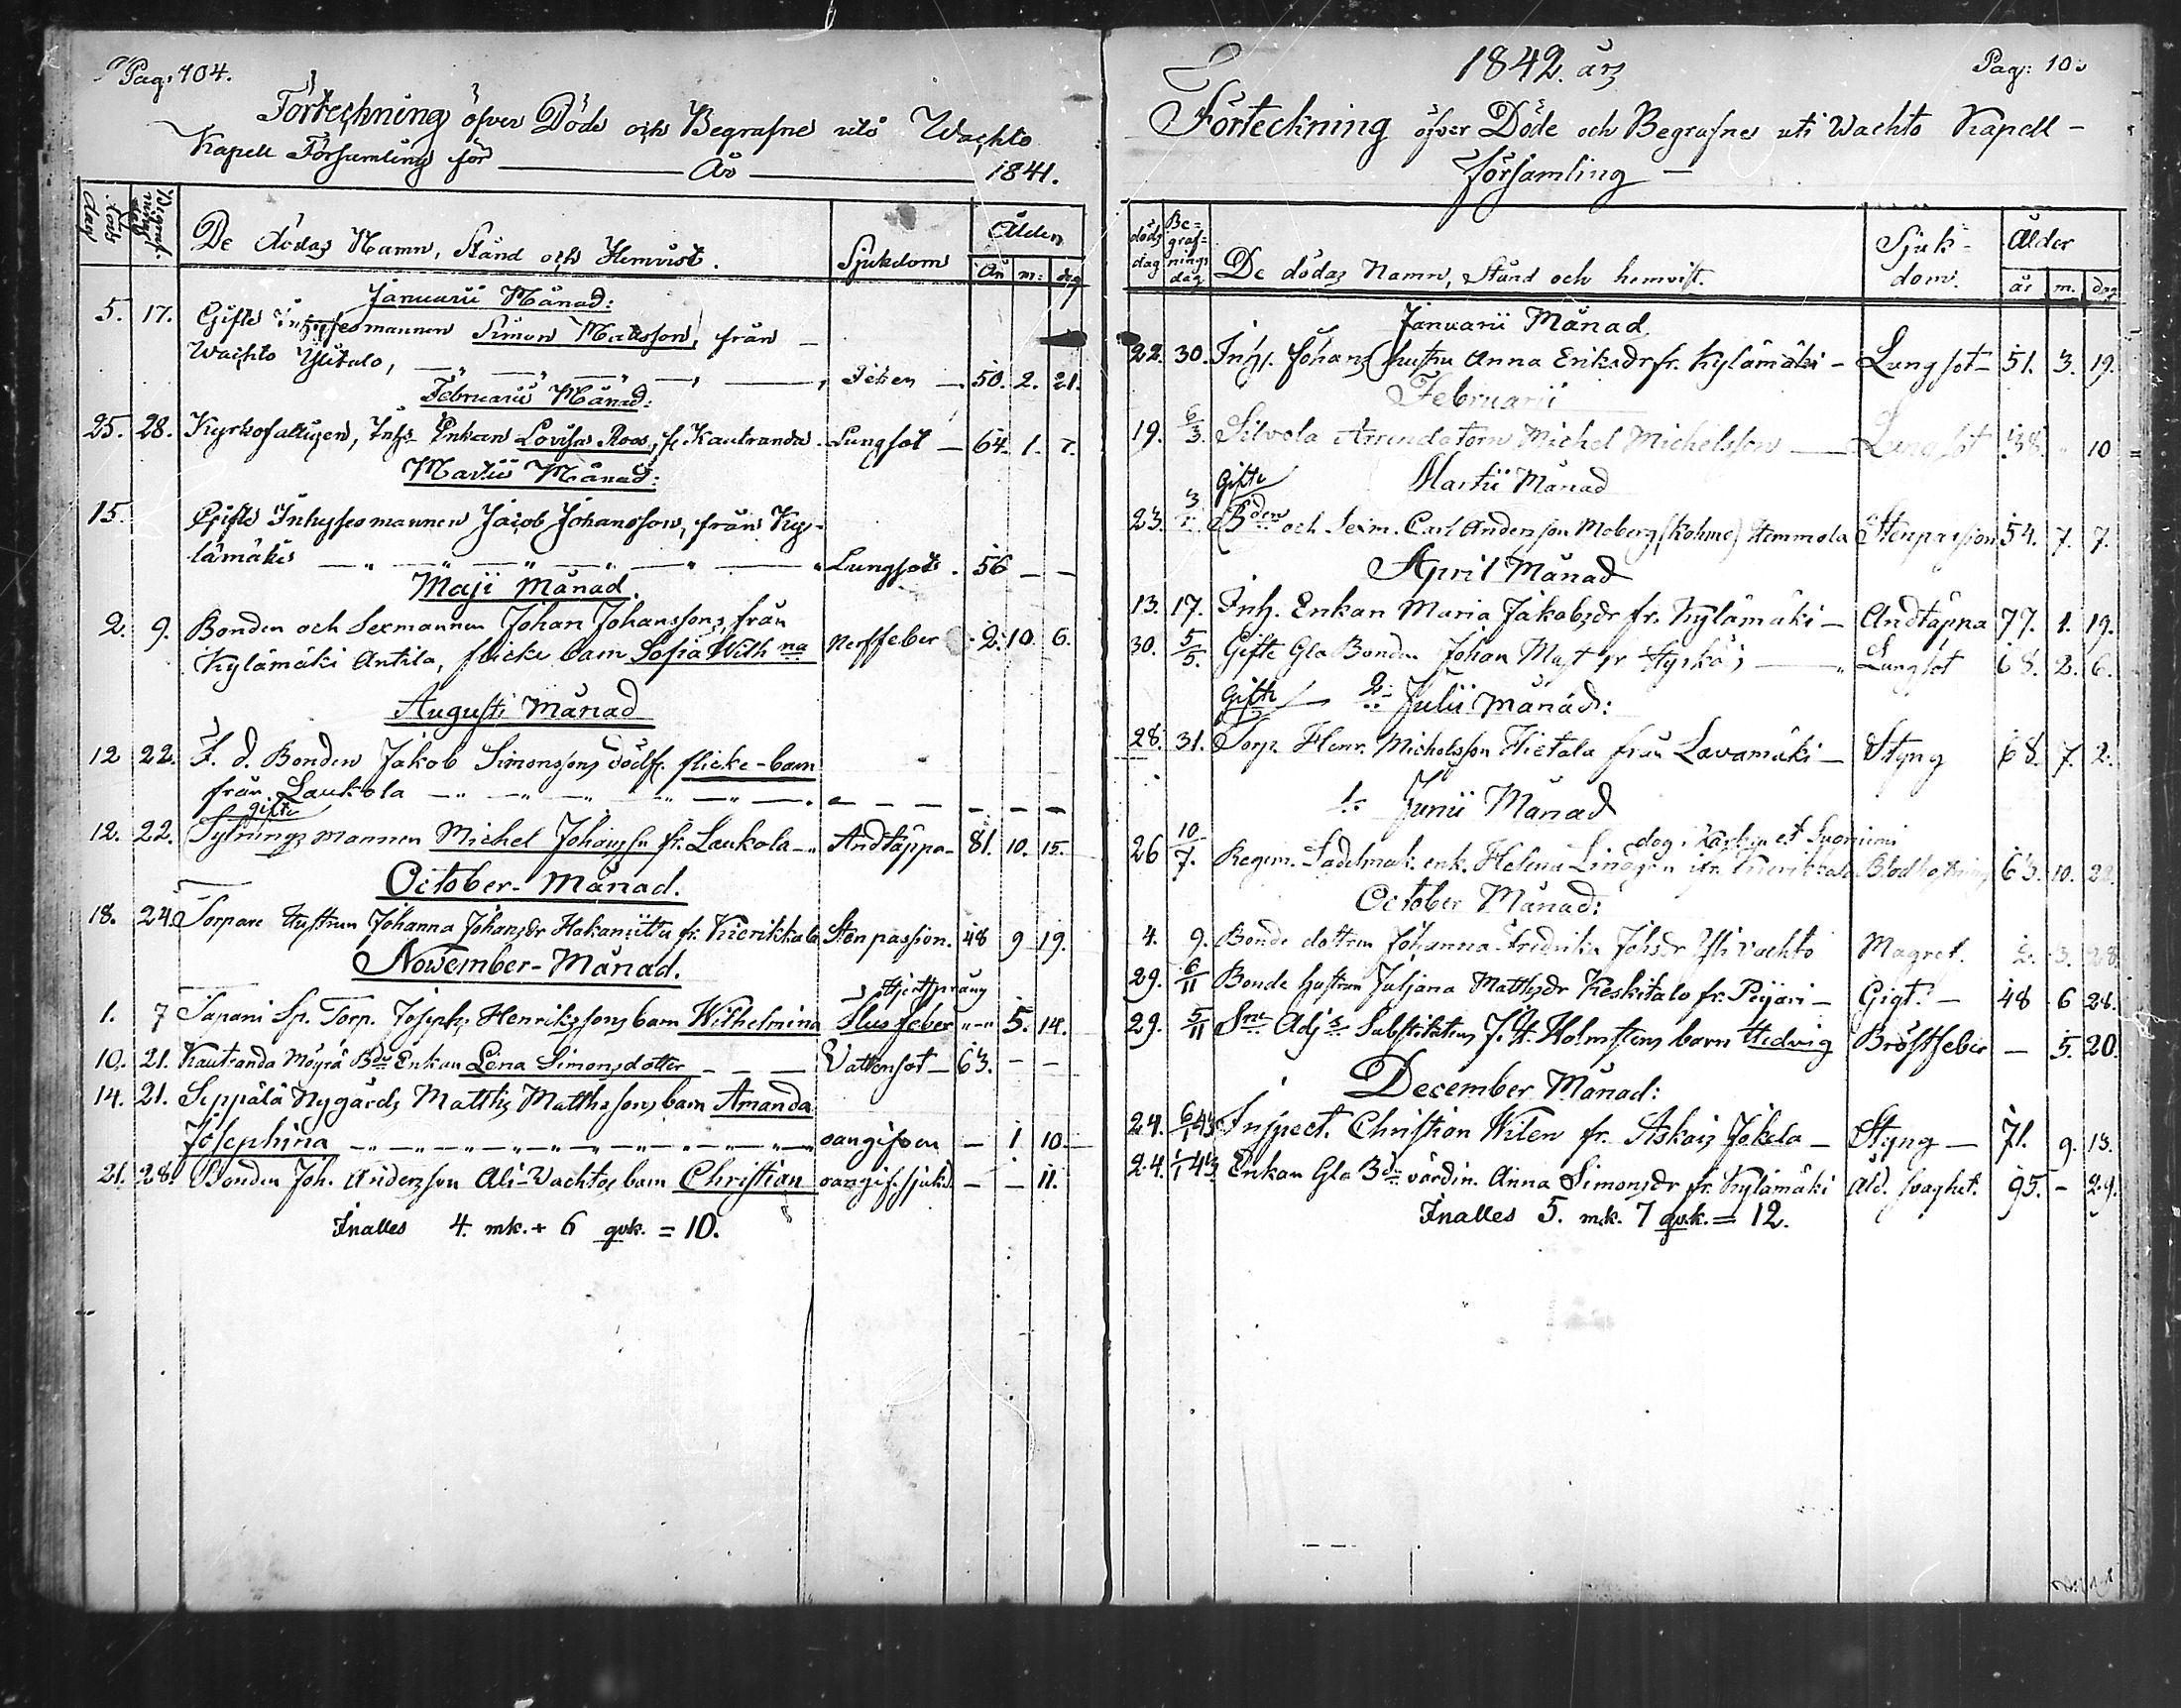 Pag: 104.
Förteckning öfver Döde och Begrafne uti Wachto
Kapell Församling för År 1841.
De dödas Namn, Stånd och Hemvist. Sjukdom Ålder
År m: dag
Januarii Månad:
5. 17. Gifte Inhysesmannen Simon Mattsson, från
Wachto Ylitalo, 50. 2. 21.
Februarii Månad:
25. 28. Kyrkofattigen, Inhs Enkan Lovisa Roos, fr. Kautranda Lungsot 64. 1. 7.
Martii Månad:
15. Gifte Inhysesmannen Jacob Johansson, från Ky-
lämäki Lungsot 56 – –
Maji Månad.
2. 9. Bonden och Sexmannen Johan Johanssons, från
Kylämäki Antila, flicke barn Sofia Wilhna Nerffeber 2. 10. 6.
Augusti Månad
12 22. F. d. Bonden Jakob Simonssons dödf. flicke-barn
från Laukola
gifte
12. 22. Sytningsmannen Michel Johansson fr. Laukola Andtäppa 81. 10. 15.
October-Månad.
18. 24. Torpare Hustrun Johanna Johansdr Hakaniittu fr. Kierikkala Stenpassion. 48 9 19.
November-Månad.
Hjertsprång
1. 7 Tapani Sp. Torp. Josephs Henrikssons barn Wilhelmina Slusfeber „-„ 5. 14.
10. 21. Kautranda Mögrä Bde Enkan Lena Simonsdotter – – – Vattensot 63. – –
14. 21. Seppälä Nygårds Matths Matthssons barn Amanda
Josephina oangifven – 1 10
21. 28. Bonden Joh. Andersson Ali-Vachtos barn Christian oangif. sjukd. – – 11.
Inalles 4. mk. + 6 qvk. = 10.
1842. års Pag: 10
Förteckning öfver Döde och Begrafne uti Wachto Kapell-
församling –
döds dag Be=grafnings dag De dödas Namn, Stånd och hemvist. Sjuk-dom. Ålder
år m. dag
Januarii Månad.
22. 30. Inhs. Johans hustru Anna Eriksdr fr. Kylämäki – Lungsot – 51. 3. 19.
Februarii
19. 6/3. Silvola Arrendatorn Michel Michelsson – Lungsot 38. „ 10
Gifte Martii Månad
23. Bden och Sexm. Carl Andersson Moberg (Kohme) Hemmola Stenpassion 54. 7. 7.
April Månad
13. 17. Inh. Enkan Maria Jakobsdr fr. Kylämäki – Andtäpna 77. 1. 19.
30. 5/5. Gifte Gla Bonden Johan Matts fr Lungsot 68. 2. 6.
Gifte 2: Julii Månad:
28. 31. Torp. Henr. Michelsson Hietala från Lavamäki – Styng 68. 7. 2.
1: Junii Månad
26 10/7. Regem. Sadelmak. enk. Helena fr. Kierikkala 63. 10. 22.
October Månad:
4. 9. Bonde dottren Johanna Fredrika Johsdr Yli Vachto Magret. 2. 3. 28
29. 6/11 Bonde hustrun Juljana Matthsdr Keskitalo fr. Pyjari – Gigt. – 48 6 28.
29. 5/11 Sne Adjs Substitutens J. H. Holmstens barn Hedvig Bröstfeber – 5. 20.
December Månad:
24. 6/1 43 Inspect. Christian Wilen fr. Askais Jokela – Styng – 71. 9. 13.
24. 1/1 43 Enkan Gla Bde värdin. Anna Simonsdr fr. Kylämäki Åld. svaghet. 95. – 29.
Inalles 5. mk. 7 qvk. = 12.